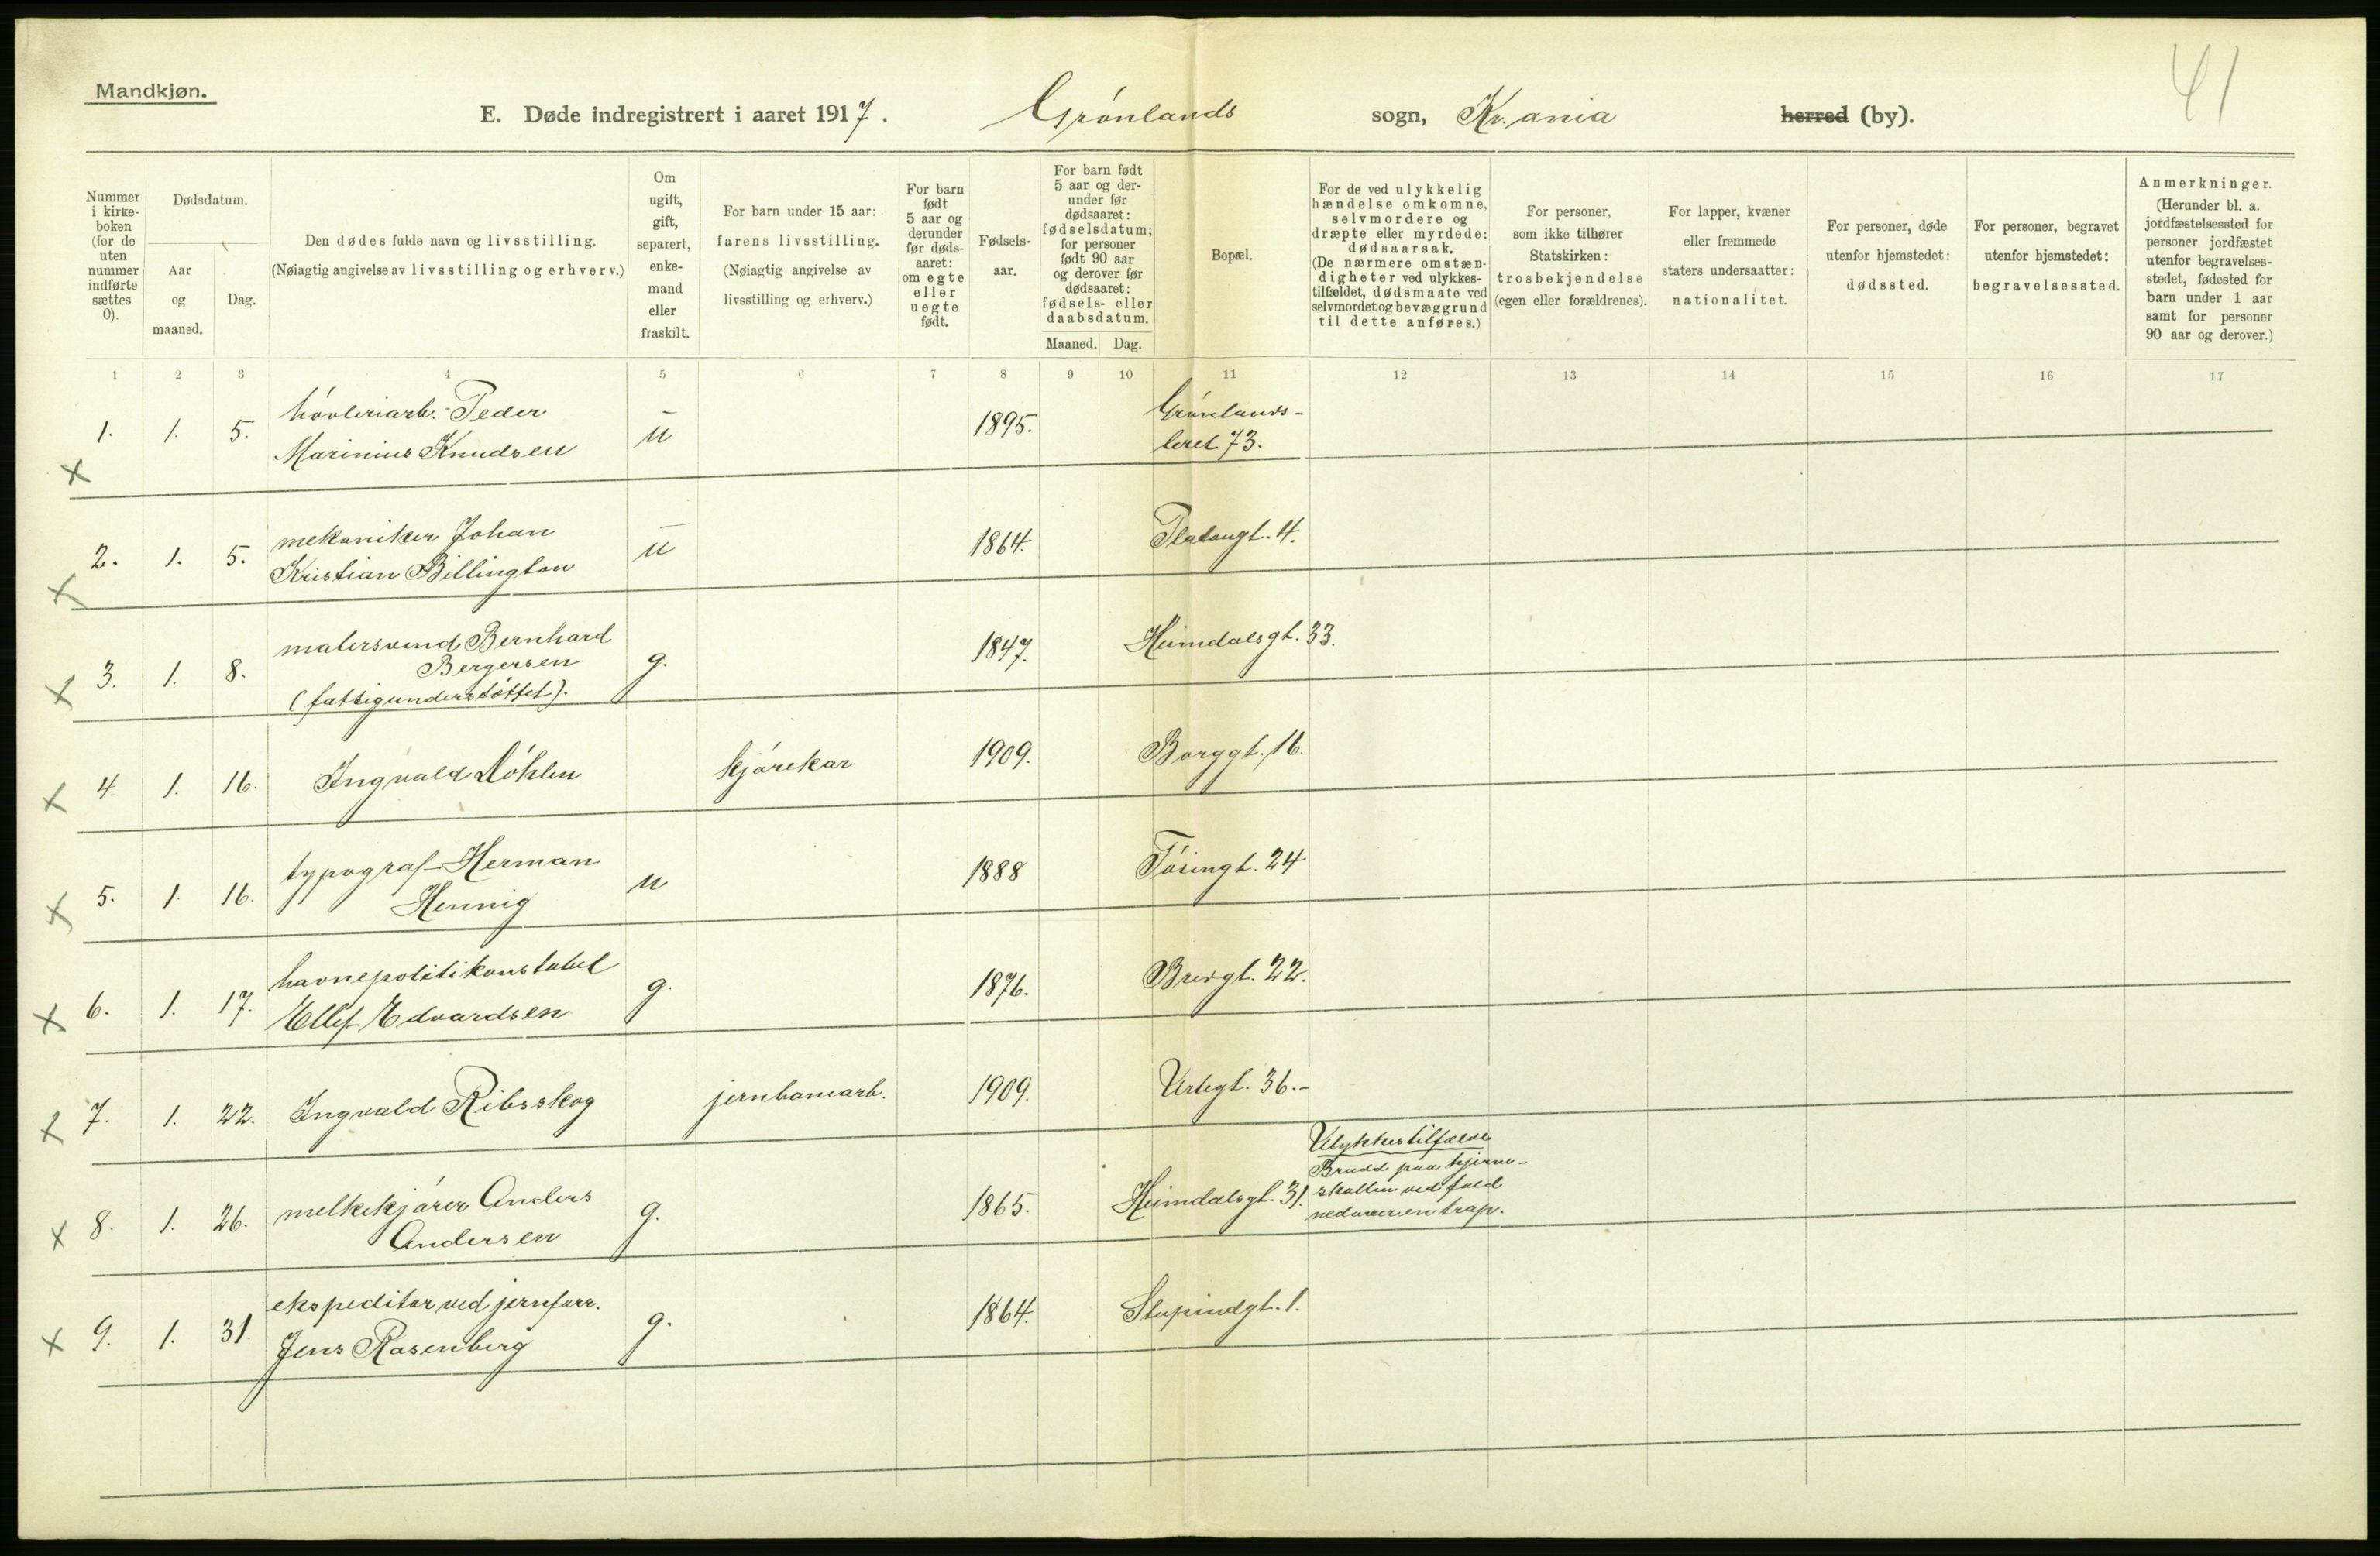 Mandkjøn.
41
E. Døde indregistrert i aaret 1917. Grønlands sogn, Kr.ania herred (by).
Nummer i kirkeboken (for de uten nummer indførte sættes 0).
Dødsdatum.
Aar og maaned.
Dag.
Den dødes fulde navn og livsstilling.
(Nøiagtig angivelse av livsstilling og erhverv.)
Om ugift, gift, separert, enkemand eller fraskilt.
For barn under 15 aar: farens livsstilling.
(Nøiagtig angivelse av livsstilling og erhverv.)
For barn født 5 aar og derunder før dødsaaret: om egte eller uegte født.
Fødselsaar.
For barn født 5 aar og derunder før dødsaaret: fødselsdatum; for personer født 90 aar og derover før dødsaaret: fødsels- eller daabsdatum.
Maaned. Dag.
Bopæl.
For de ved ulykkelig hændelse omkomne, selvmordere og dræpte eller myrdede: dødsaarsak. (De nærmere omstændigheter ved ulykkestilfældet, dødsmaate ved selvmordet og bevæggrund til dette anføres.)
For personer, som ikke tilhører Statskirken: trosbekjendelse (egen eller forældrenes).
For lapper, kvæner eller fremmede staters undersaatter: nationalitet.
For personer, døde utenfor hjemstedet: dødssted.
For personer, begravet utenfor hjemstedet: begravelsessted.
Anmerkninger. (Herunder bl. a. jordfæstelsessted for personer jordfæstet utenfor begravelsesstedet, fødested for barn under 1 aar samt for personer 90 aar og derover.)
1 2 3 4 5 6 7 8 9 10 11 12 13 14 15 16 17
x 1. 1. 5. høvleriarb. Peder
Marinius Knudsen u 1895. Grønlands-
leret 73.
x 2. 1. 5. mekaniker Johan
Kristian Billington u 1864. Platougt. 4.
x 3. 1. 8. malersvend Bernhard
Bergersen
(fattigunderstøttet). g. 1847. Heimdalsgt. 33.
x 4. 1. 16. Ingvald Løhlen kjørekar 1909. Borggt. 16.
x 5. 1. 16. typograf Herman
Hennig u 1888 Tøiengt. 24
x 6. 1. 17. havnepolitikonstabel
Ellef Edvardsen g. 1876. Breigt. 22.
x 7. 1. 22. Ingvald Ribsskog jernbanearb. 1909. Urtegt. 36.-
x 8. 1. 26. melkekjører Anders
Andersen g. 1865. Heimdalsgt. 31.
Ulykkestilfælde
Brudd paa hjerne-
skallen ved fald
nedover en trap.
x 9. 1. 31. ekspeditør ved jernforr.
Jens Rosenberg g. 1864. Stupindgt. 1.